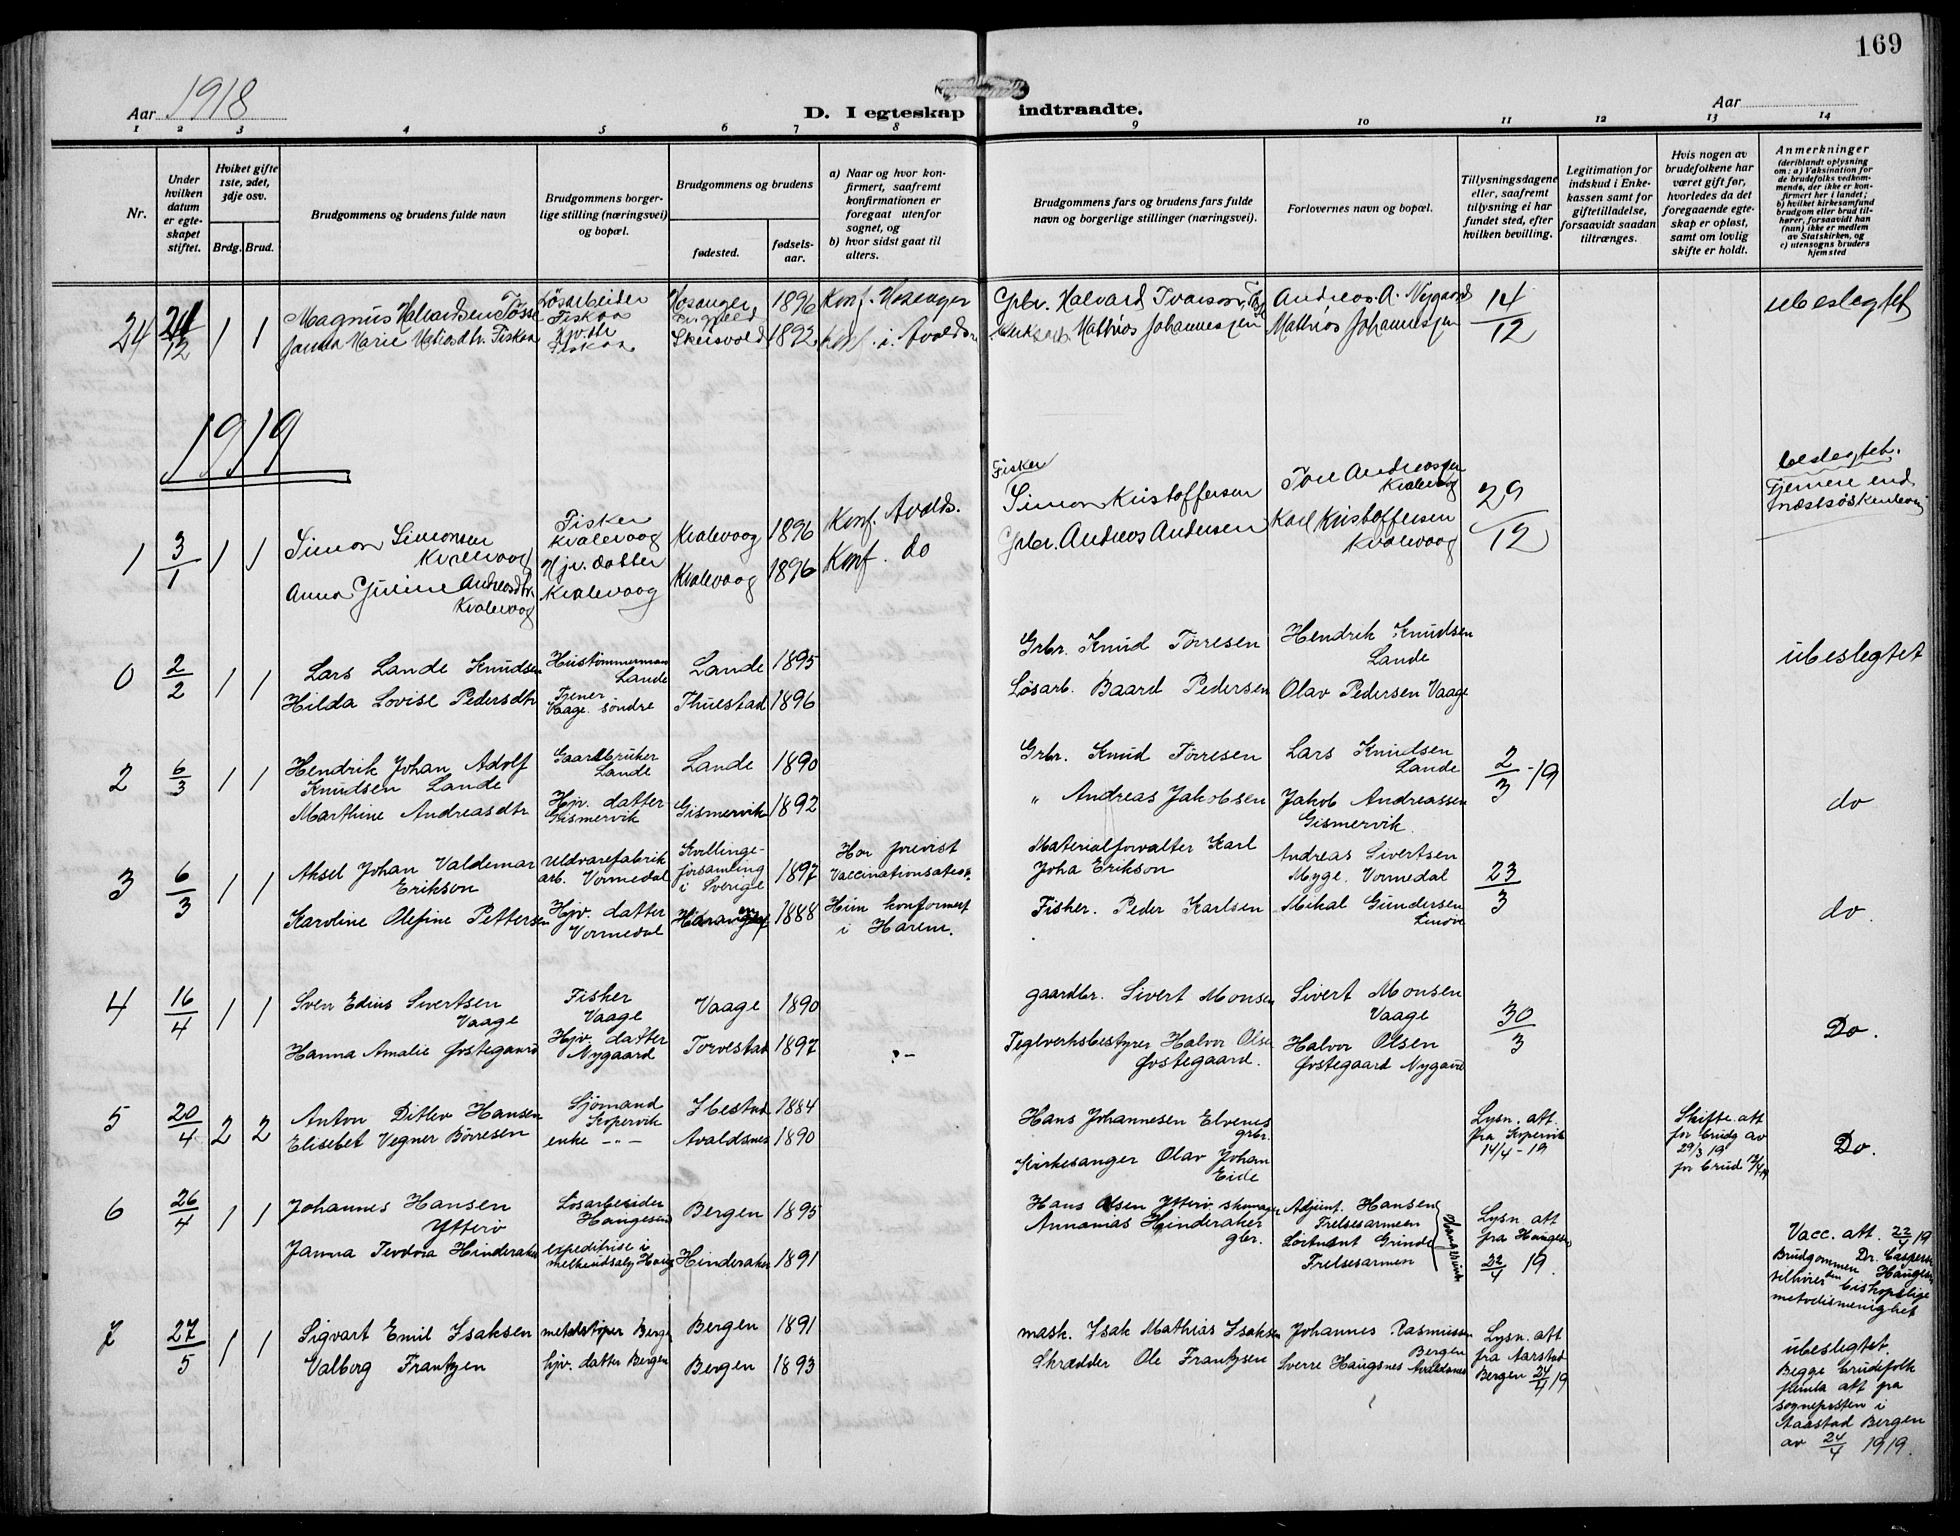 169
Aar 1918
D. I egteskap indtraadte.
Aar
1 2 3 4 5 6 7 8 9 10 11 12 13 14
Nr.
Under hvilken datum er egteskapet stiftet.
Hvilket gifte 1ste, 2det, 3dje osv.
Brdg. Brud.
Brudgommens og brudens fulde navn
Brudgommens borgerlige stilling (næringsvei) og bopæl.
Brudgommens og brudens
fødested.
fødselsaar.
a) Naar og hvor konfirmert, saafremt konfirmationen er foregaat utenfor sognet, og
b) hvor sidst gaat til alters.
Brudgommens fars og brudens fars fulde navn og borgerlige stillinger (næringsvei).
Forlovernes navn og bopæl.
Tillysningsdagene eller, saafremt tillysning ei har fundet sted, efter hvilken bevilling.
Legitimation for indskud i Enkekassen samt for giftetilladelse, forsaavidt saadan tiltrænges.
Hvis nogen av brudefolkene har været gift før, hvorledes da det foregaaende egteskap er opløst, samt om lovlig skifte er holdt.
Anmerkninger
(deriblandt oplysning om: a) Vaksination for de brudefolks vedkommende, der ikke er konfirmert her i landet; b) hvilket kirkesamfund brudgom eller brud tilhører, forsaavidt han (hun) ikke er medlem av Statskirken, og c) utensogns bruders hjemsted
24 21/12 1 1 Magnus Halvardsen Tosse Løsarbeider Fiskaa Hosanger 1896 Konf. Hosanger Grbr. Halvard Ivarson Andreas A. Nygaard 14/12 ubeslegtet
Janna Marie Matiasdtr. Fiskaa Fiskaa 1892 Konf. i Avaldsn Mathias Johannesjen Mathias Johannesjen
1919
1 3/1 1 1 Simon Simonsen Kvalevaag Fisker Kvalevaag Kvalevaag 1896 Konf. Avalds. Fisker Simon Kristoffersen Tore Andreasjen Kvalevaag 29/12 beslegtet. Fjernere end næstsøskende
Anna Gurine Andreasdtr. Kvalevaag Hjv. datter Kvalevaag Kvalevaag 1896 Konf. do Grbr. Andreas Andersen Karl Kristoffersen Kvalevaag
0 2/2 1 1 Lars Lande Knudsen Hustømmerman Lande Lande 1895 Grbr. Knud Tørresen Hendrik Knudsen Lande ubeslegtet
Hilda Lovise Pedersdtr Tjener Vaage søndre Thuestad 1896 Løsarb. Baard Pedersen Olav Pedersen Vaage
2 6/3 1 1 Hendrik Johan Adolf Knudsen Lande Gaardbruker Lande Lande 1890 Grbr. Knud Tørresen Lars Knudsen Lande 2/3-19
Marthine Andreasdtr Hjv. datter Gismervik Gismervik 1892 " Andreas Jakobsen Jakob Andreassen Gismervik. do
3 6/3 1 1 Aksel Johan Valdemar Erikson Uldvarefabrik arb. Vormedal Kvillinge-forsamling i Sverige 1897 Har forevist Vaccinationsatest. Materialforvalter Karl Joha Erikson Andreas Sivertsen Myge. Vormedal 23/3
Karoline Olefine Pettersen Hjv. datter Vormedal 1888 Hun konformert i Harem. Fisher. Peder Karlsen Mikal Gundersen do.
4 16/4 1 1 Sven Edius Sivertsen Vaage Fisher Vaage Vaage 1890 gaardbr. Sivert Monsen Sivert Monsen Vaage 30/3 Do.
Hanna Amalie Østegaard Hjv. datter Nygaard Torvestad 1897 Teglverksbestyrer Halvor Olsen Østegaard. Halvor Olsen Østegaard Nygaard
5 20/4 2 2 Anton Ditlev Hansen Sjømand Kopervik Ibestad 1884 Hans Johannesen Elvenes grbr. Lysn. att. fra Kopervik 14/4-19 Skifte att for brudg av 29/3 19 for brud Do.
Elisebet Vegner Børresen enke -"- Avaldsnes 1890 Kirkesanger Olav Johan Eide
6 26/4 1 1 Johannes Hansen Ytterø Løsarbeider Haugesund Bergen 1895 Hans Olsen Ytterø Adjint. Hansen Frelsesarmeen Lysn. att fra Haugesu 22/4 19. Vacc. att. 22/4 19
Janna Teodora Hinderaker expeditrise i melkeudsalg Haug Hinderaker 1891 Annanias Hinderaker gbr. Løitnant Grinde Frelsesarmen Haugesund Brudgommen Dr. Caspersen Haugesund tilhører den biskopelige metodismenighet
7 27/5 1 1 Sigvart Emil Isaksen metalstøper Bergen Bergen 1891 mask. Isak Mathias Isaksen Johannes Rasmussen Bergen Lysn. att fra Aarstad Bergen 24/4 19 ubeslegtet.
Valberg Frantzen hjv. datter Bergen Bergen 1893 Skrædder Ole Frantzsen Sverre Haugsnes Avaldsnes Begge brudefolk att fra sognepresten i Aarstad Bergen av 24/4 1919.